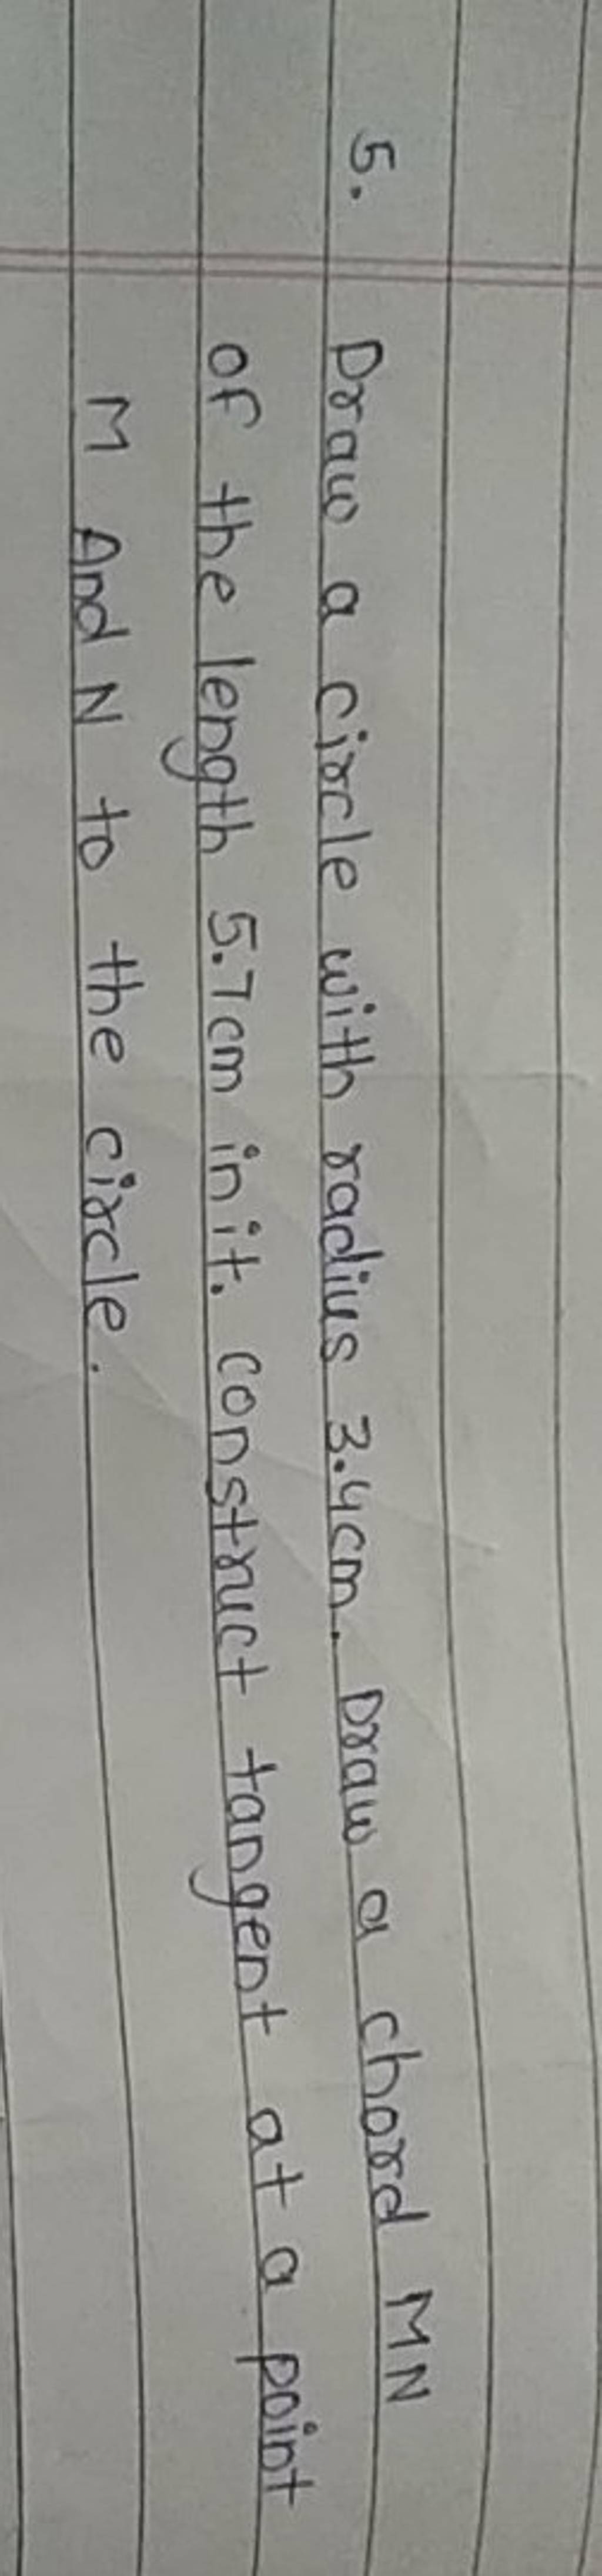 5. Draw a circle with radius 3.4cm. Draw a chord MN
of the length 5.7cm in it. construct tangent at a point
M And N to the circle.